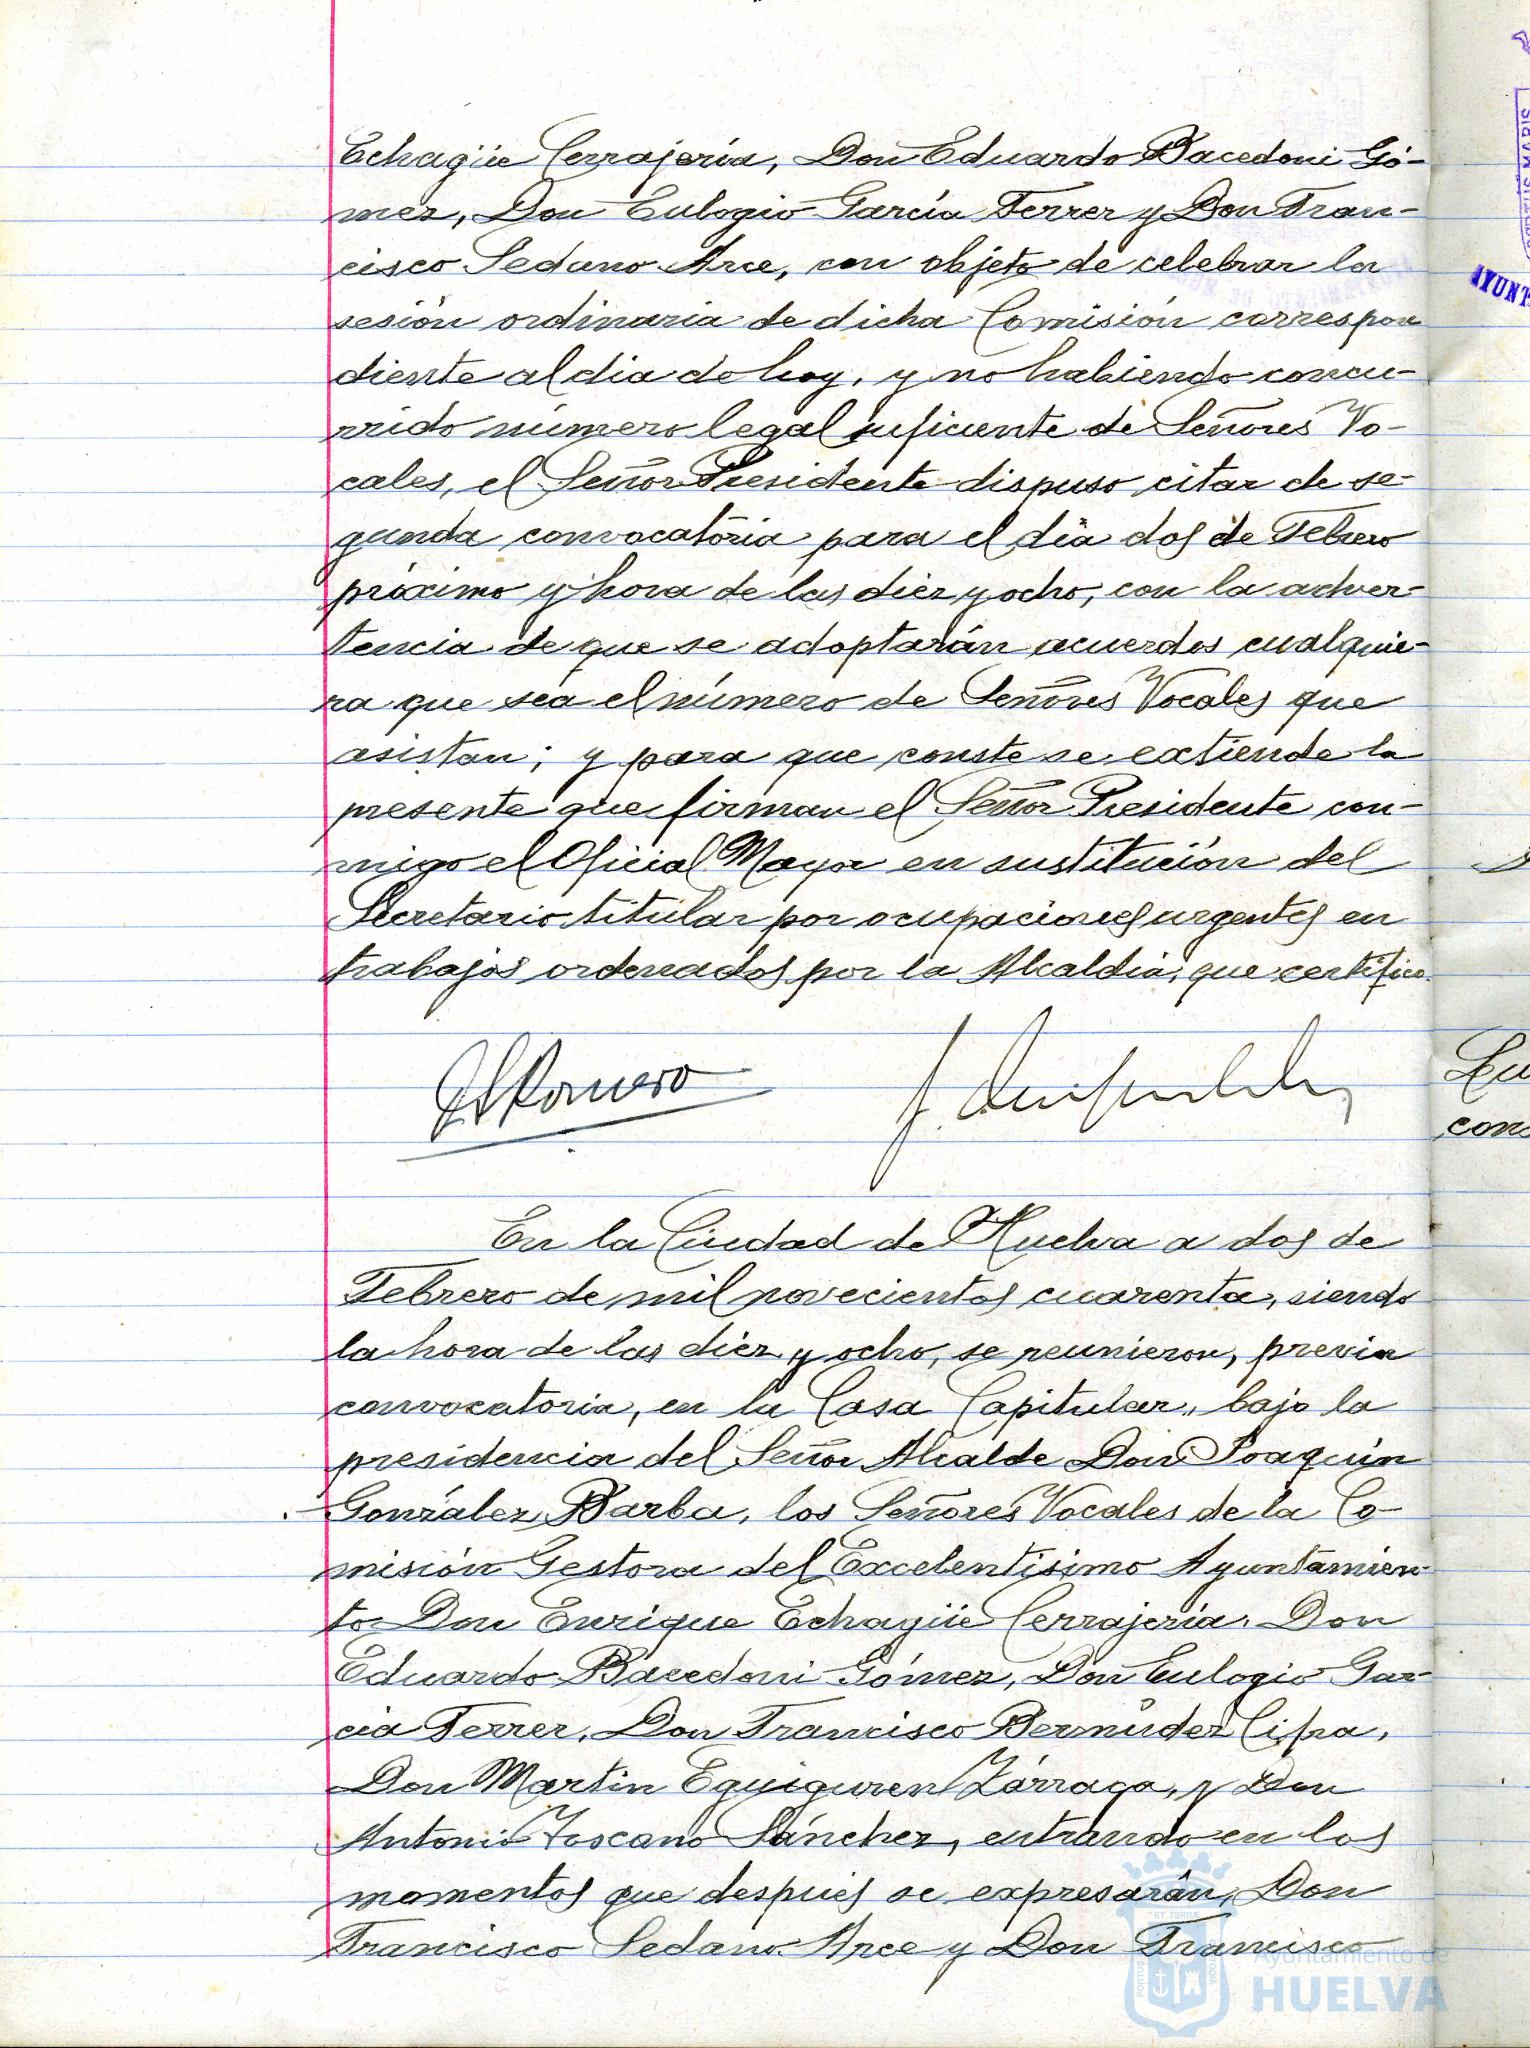 Echagüe Cerrajería, Don Eduardo Bacedoni Gó-
mez, Don Eulogio García Ferrer y Don Fran-
cisco Sedano Arce, con objeto de celebrar la
sesión ordinaria de dicha Comisión correspon
diente al dia de hoy, y no habiendo concu-
rrido número legal suficiente de Señores Vo-
cales, el Señor Presidente dispuso citar de se-
gunda convocatória para el día dos de Febrero
próximo y hora de las diez y ocho, con la adver-
tencia de que se adoptarán acuerdos cualquie-
ra que séa el número de Señores Vocales que
asistan; y para que conste se extiende la
presente que firman el Señor Presidente con-
migo el Oficial Mayor en sustitución del
Secretario titular por ocupaciones urgentes en
trabajos ordenados por la Alcaldía, que certifico.
Romero
En la Ciudad de Huelva a dos de
Febrero de mil novecientos cuarenta, siendo
la hora de las diez y ocho, se reunieron, previa
convocatoria, en la Casa Capitular, bajo la
presidencia del Señor Alcalde Don Joaquín
González Barba, los Señores Vocales de la Co-
misión Gestora del Excelentísimo Ayuntamien-
to Don Enrique Echagüe Cerrajería, Don
Eduardo Bacedoni Gómez, Don Eulogio Gar-
cía Ferrer, Don Francisco Bermúdez Cipra,
Don Martín Eguiguren Zárraga, y Don
Antonio Toscano Sánchez, entrando en los
momentos que después se expresarán, Don
Francisco Sedano Arce y Don Francisco
Ayuntamiento de
HUELVA